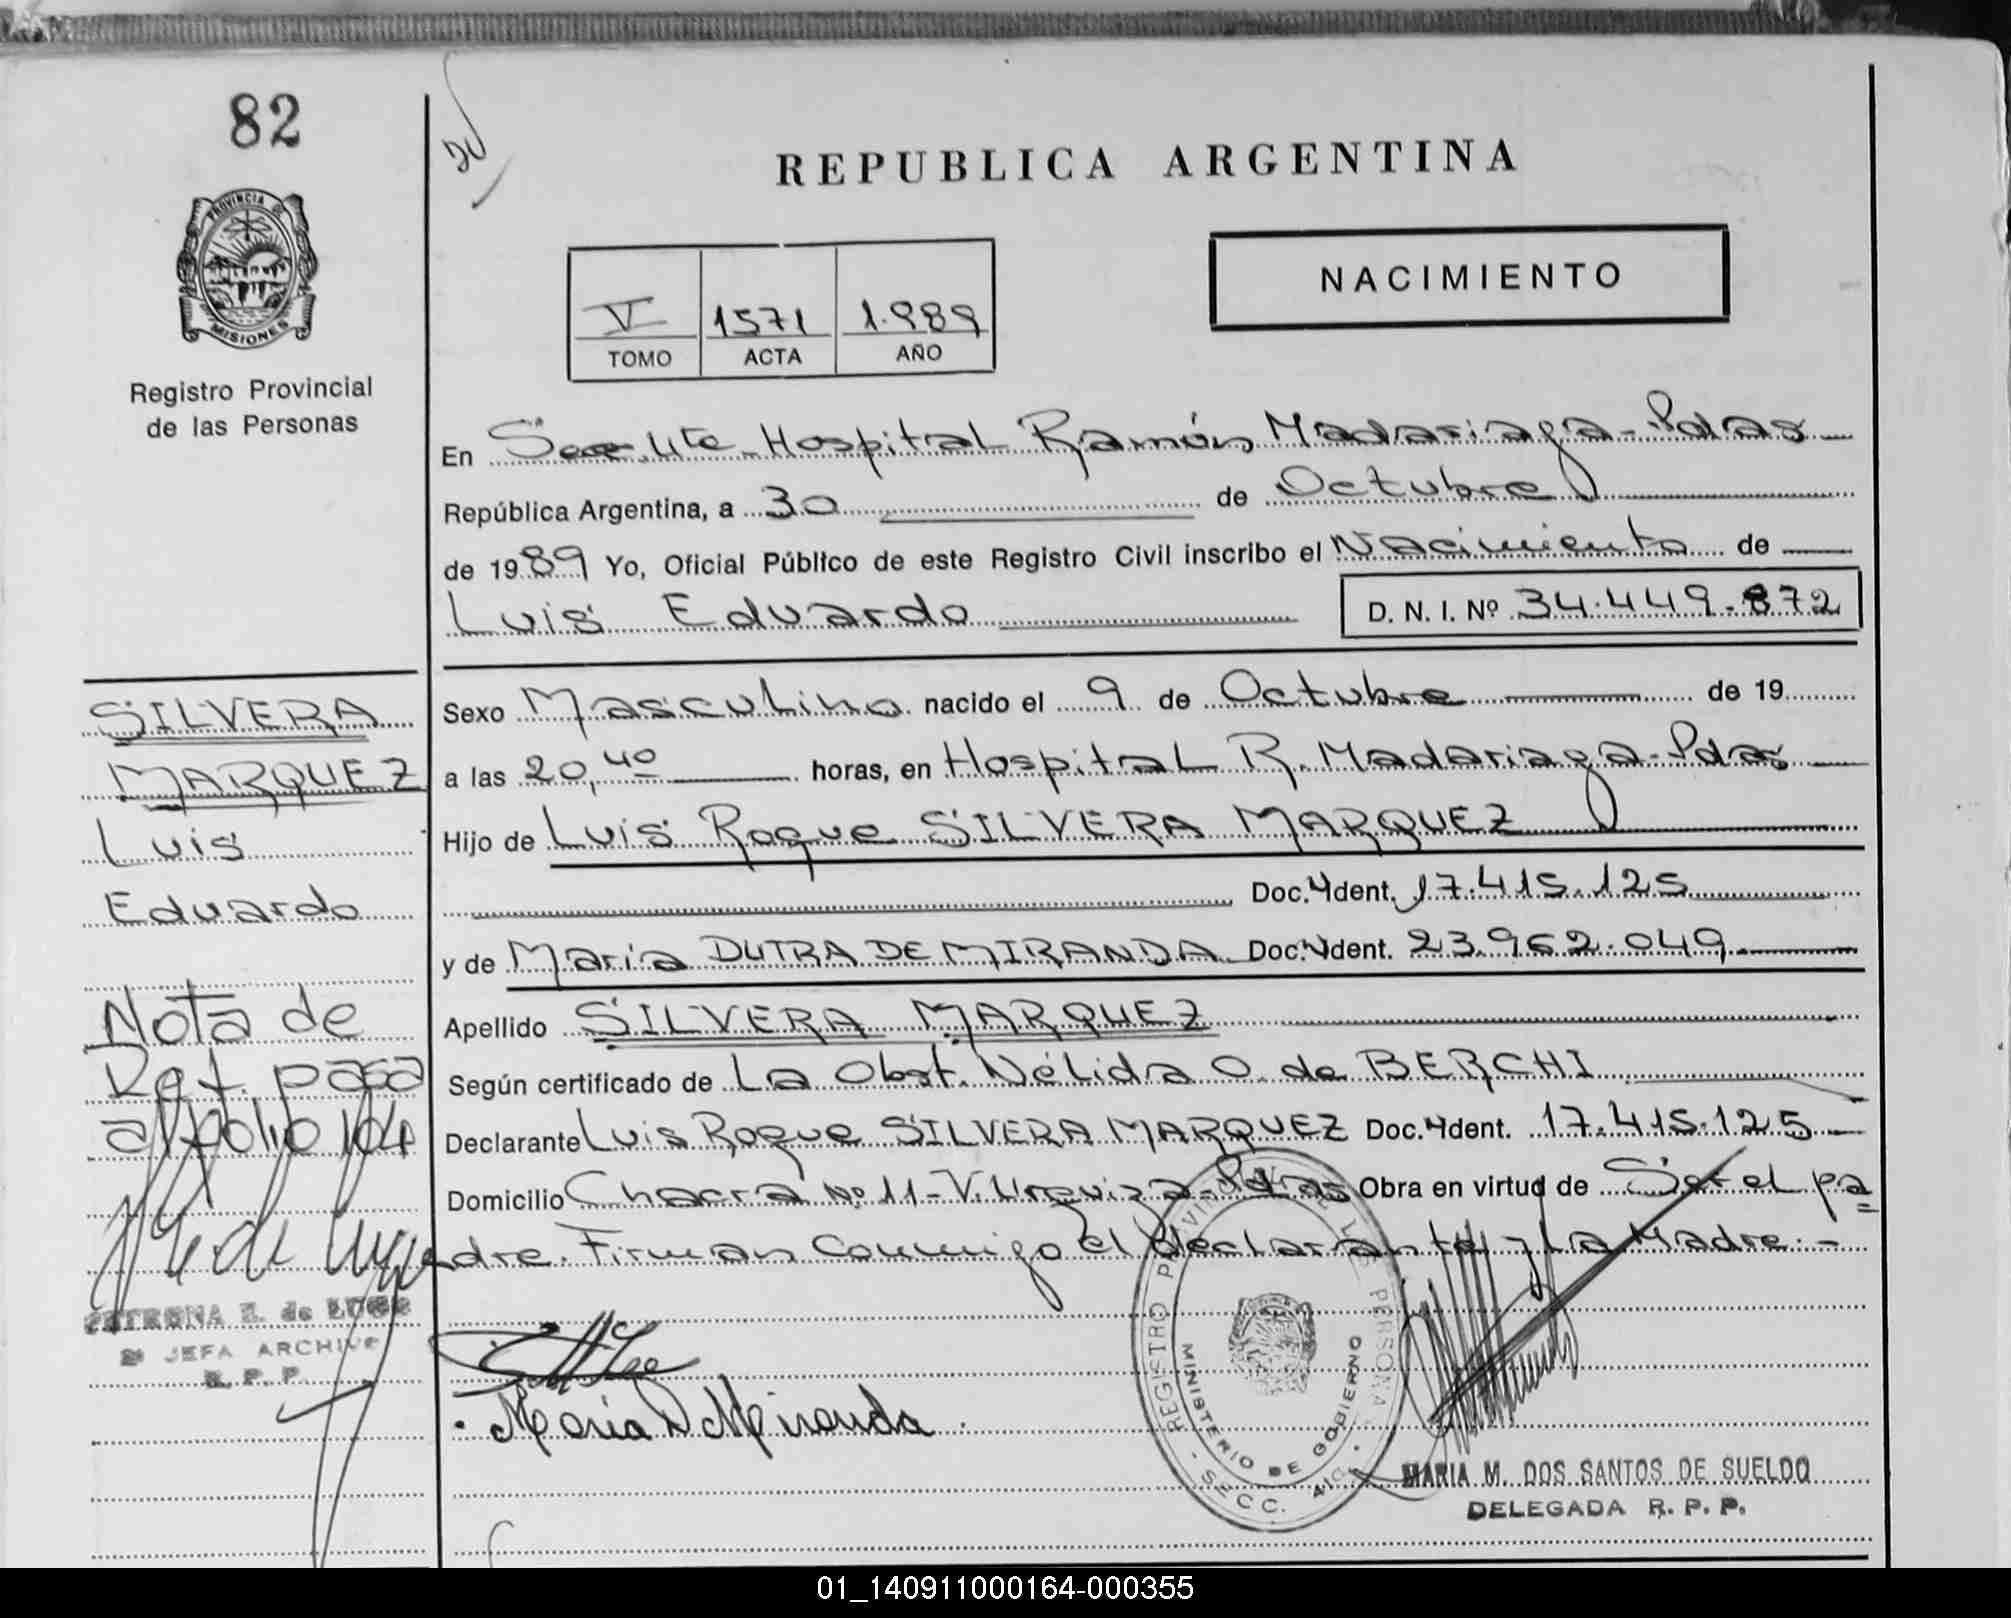 82
REPUBLICA ARGENTINA
PROVINCIA DE
MISIONES
NACIMIENTO
V 1571 1.989
TOMO ACTA AÑO
Registro Provincial
de las Personas
En Secc. 4ta Hospital Ramón Madariaga-Pdas
República Argentina, a 30 de Octubre
de 1989 Yo, Oficial Público de este Registro Civil inscribo el Nacimiento de
Luis Eduardo D. N. I. Nº 34.449.872
SILVERA
MARQUEZ
Luis
Eduardo
Sexo Masculino nacido el 9 de Octubre de 19
a las 20,40 horas, en Hospital R. Madariaga-Pdas
Hijo de Luis Roque SILVERA MARQUEZ
Doc. Ydent. 17.415.125
y de Maria DUTRA DE MIRANDA Doc. Ydent. 23.962.049
Apellido SILVERA MARQUEZ
Según certificado de La Obst. Nélida O. de BERCHI
Declarante Luis Roque SILVERA MARQUEZ Doc. Ydent. 17.415.125
Domicilio Chacra Nº 11-V. Urquiza-Pdas Obra en virtud de Ser el pa
dre. Firman Conmigo el declarante y La Madre.-
Nota de
Ret. pasa
al folio 104
PETRONA E. de LUGO
JEFA ARCHIVO
R. P. P.
Maria D Miranda
REGISTRO PROVINCIAL DE LAS PERSONAS
MINISTERIO DE GOBIERNO
SECC. 4ta.
MARIA M. DOS SANTOS DE SUELDO
DELEGADA R. P. P.
01_140911000164-000355